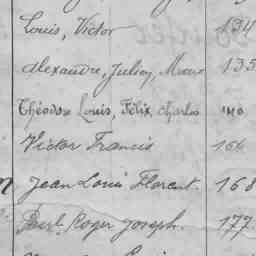 Louis, Victor 134
Alexandre, Julien, 135
Théodose Louis, Félix, Charles 140
Victor Francis 166
Jean Louis Florent. 168
Roger Joseph. 177